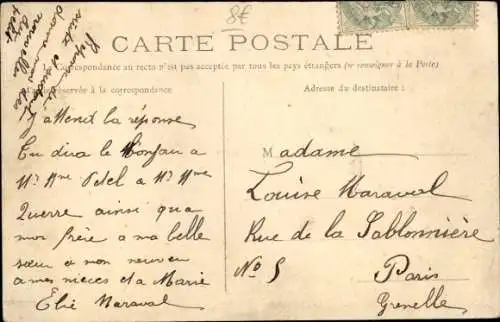 8€
CARTE POSTALE
La Correspondance au recto n'est pas acceptée par tous les pays étrangers (se renseigner à la Poste)
réservée à la correspondance
Adresse du destinataire:
J'attend la réponse
Tu dira le bonjour a
Mr Mme a Mr Mme
Querre ainsi qua
mon frère a ma belle
sœur et mon neuveu
a mes nieces et a Marie
Elie Maraval
Madame
Louise Maraval
Rue de la Sablonnière
No 5 Paris
Grenelle